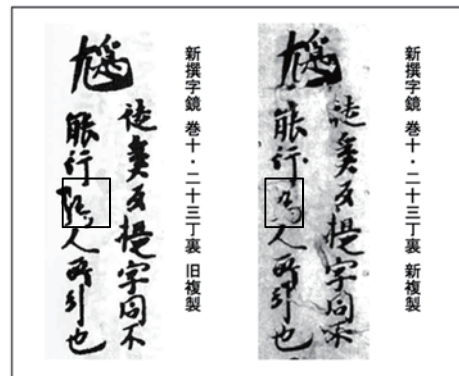 新撰字鏡 巻十・二十三丁裏 新複製
徒奚反提字同不
能行為人所引也
新撰字鏡 巻十・二十三丁裏 旧複製
徒奚反提字同不
能行 人所引也